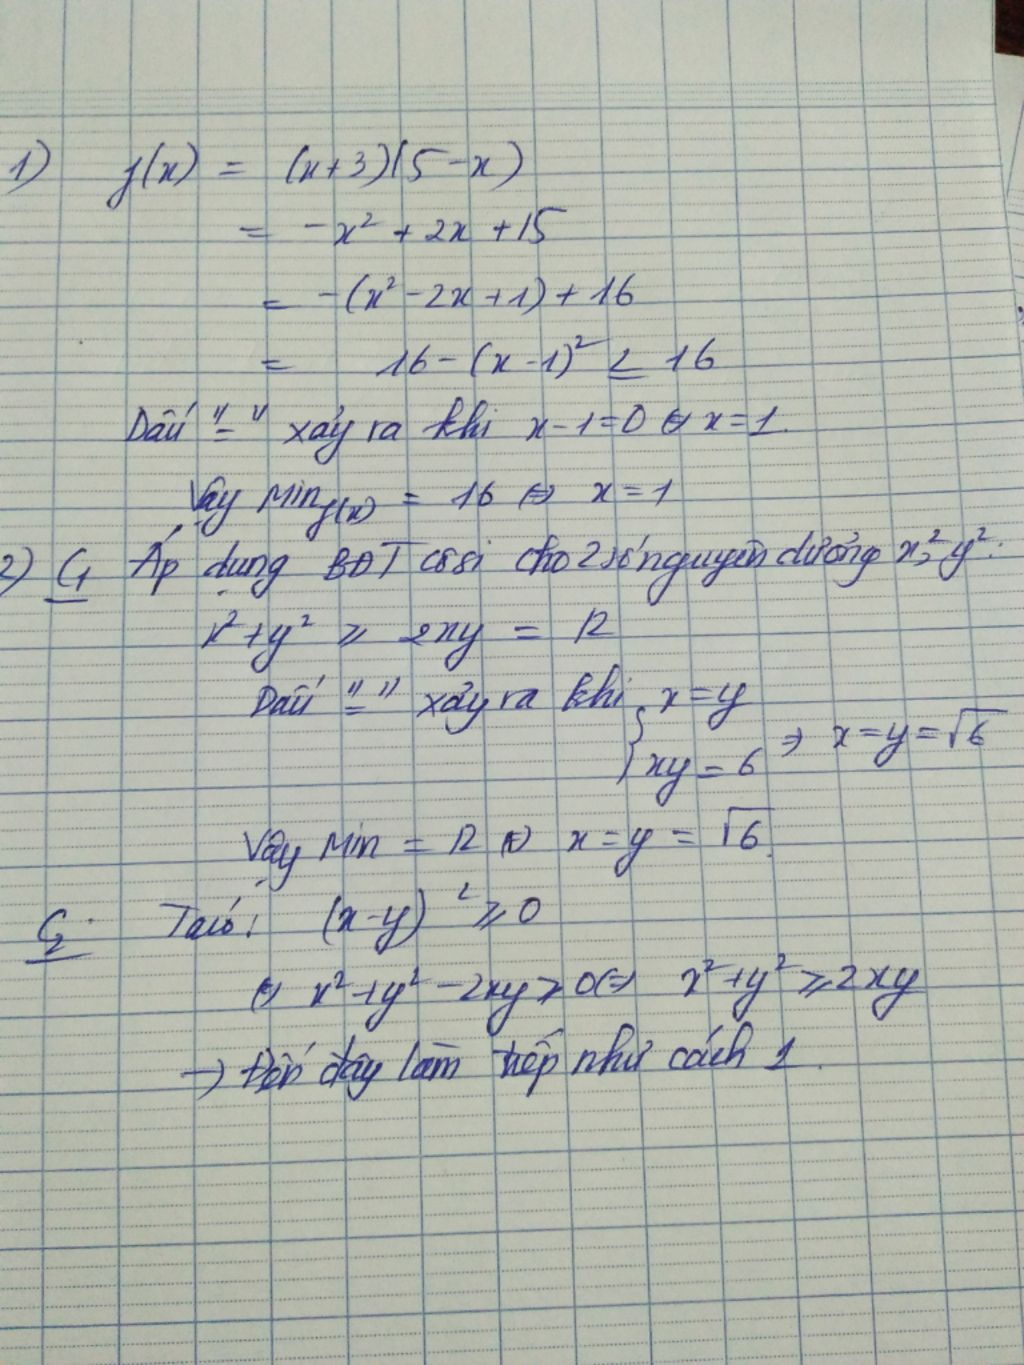 1) f(x) = (x+3)(5-x)
= -x² + 2x +15
= -(x² -2x +1) + 16
= 16 - (x-1)² ≤ 16
Dấu "=" xảy ra khi x-1=0 ⇔ x=1.
Vậy Min f(x) = 16 ⇔ x=1
2) C1 Áp dụng BĐT côsi cho 2 số nguyên dương x², y²:
x² + y² ≥ 2xy = 12
Dấu "=" xảy ra khi { x=y
xy=6 ⇒ x=y=√6
Vậy Min = 12 ⇔ x=y=√6.
C2: Ta có: (x-y)² ≥ 0
⇔ x²+y²-2xy ≥ 0 ⇔ x²+y² ≥ 2xy
→ Đến đây làm tiếp như cách 1.